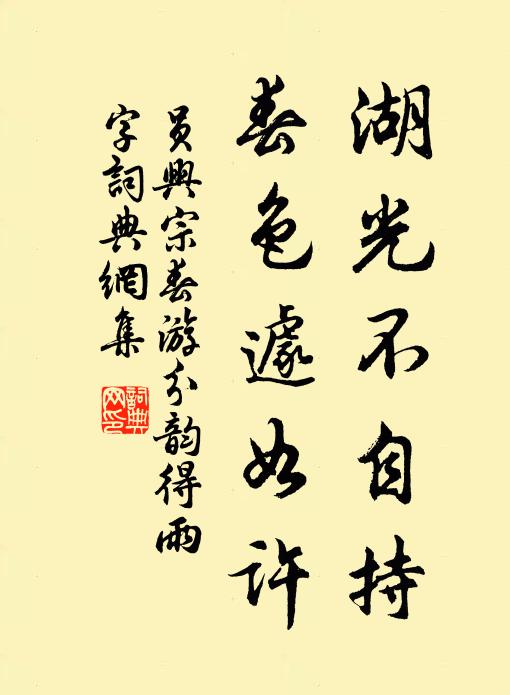 湖光不自持
春色遽如許
員興宗春游分韵得雨
字詞典網集
詞典
网印